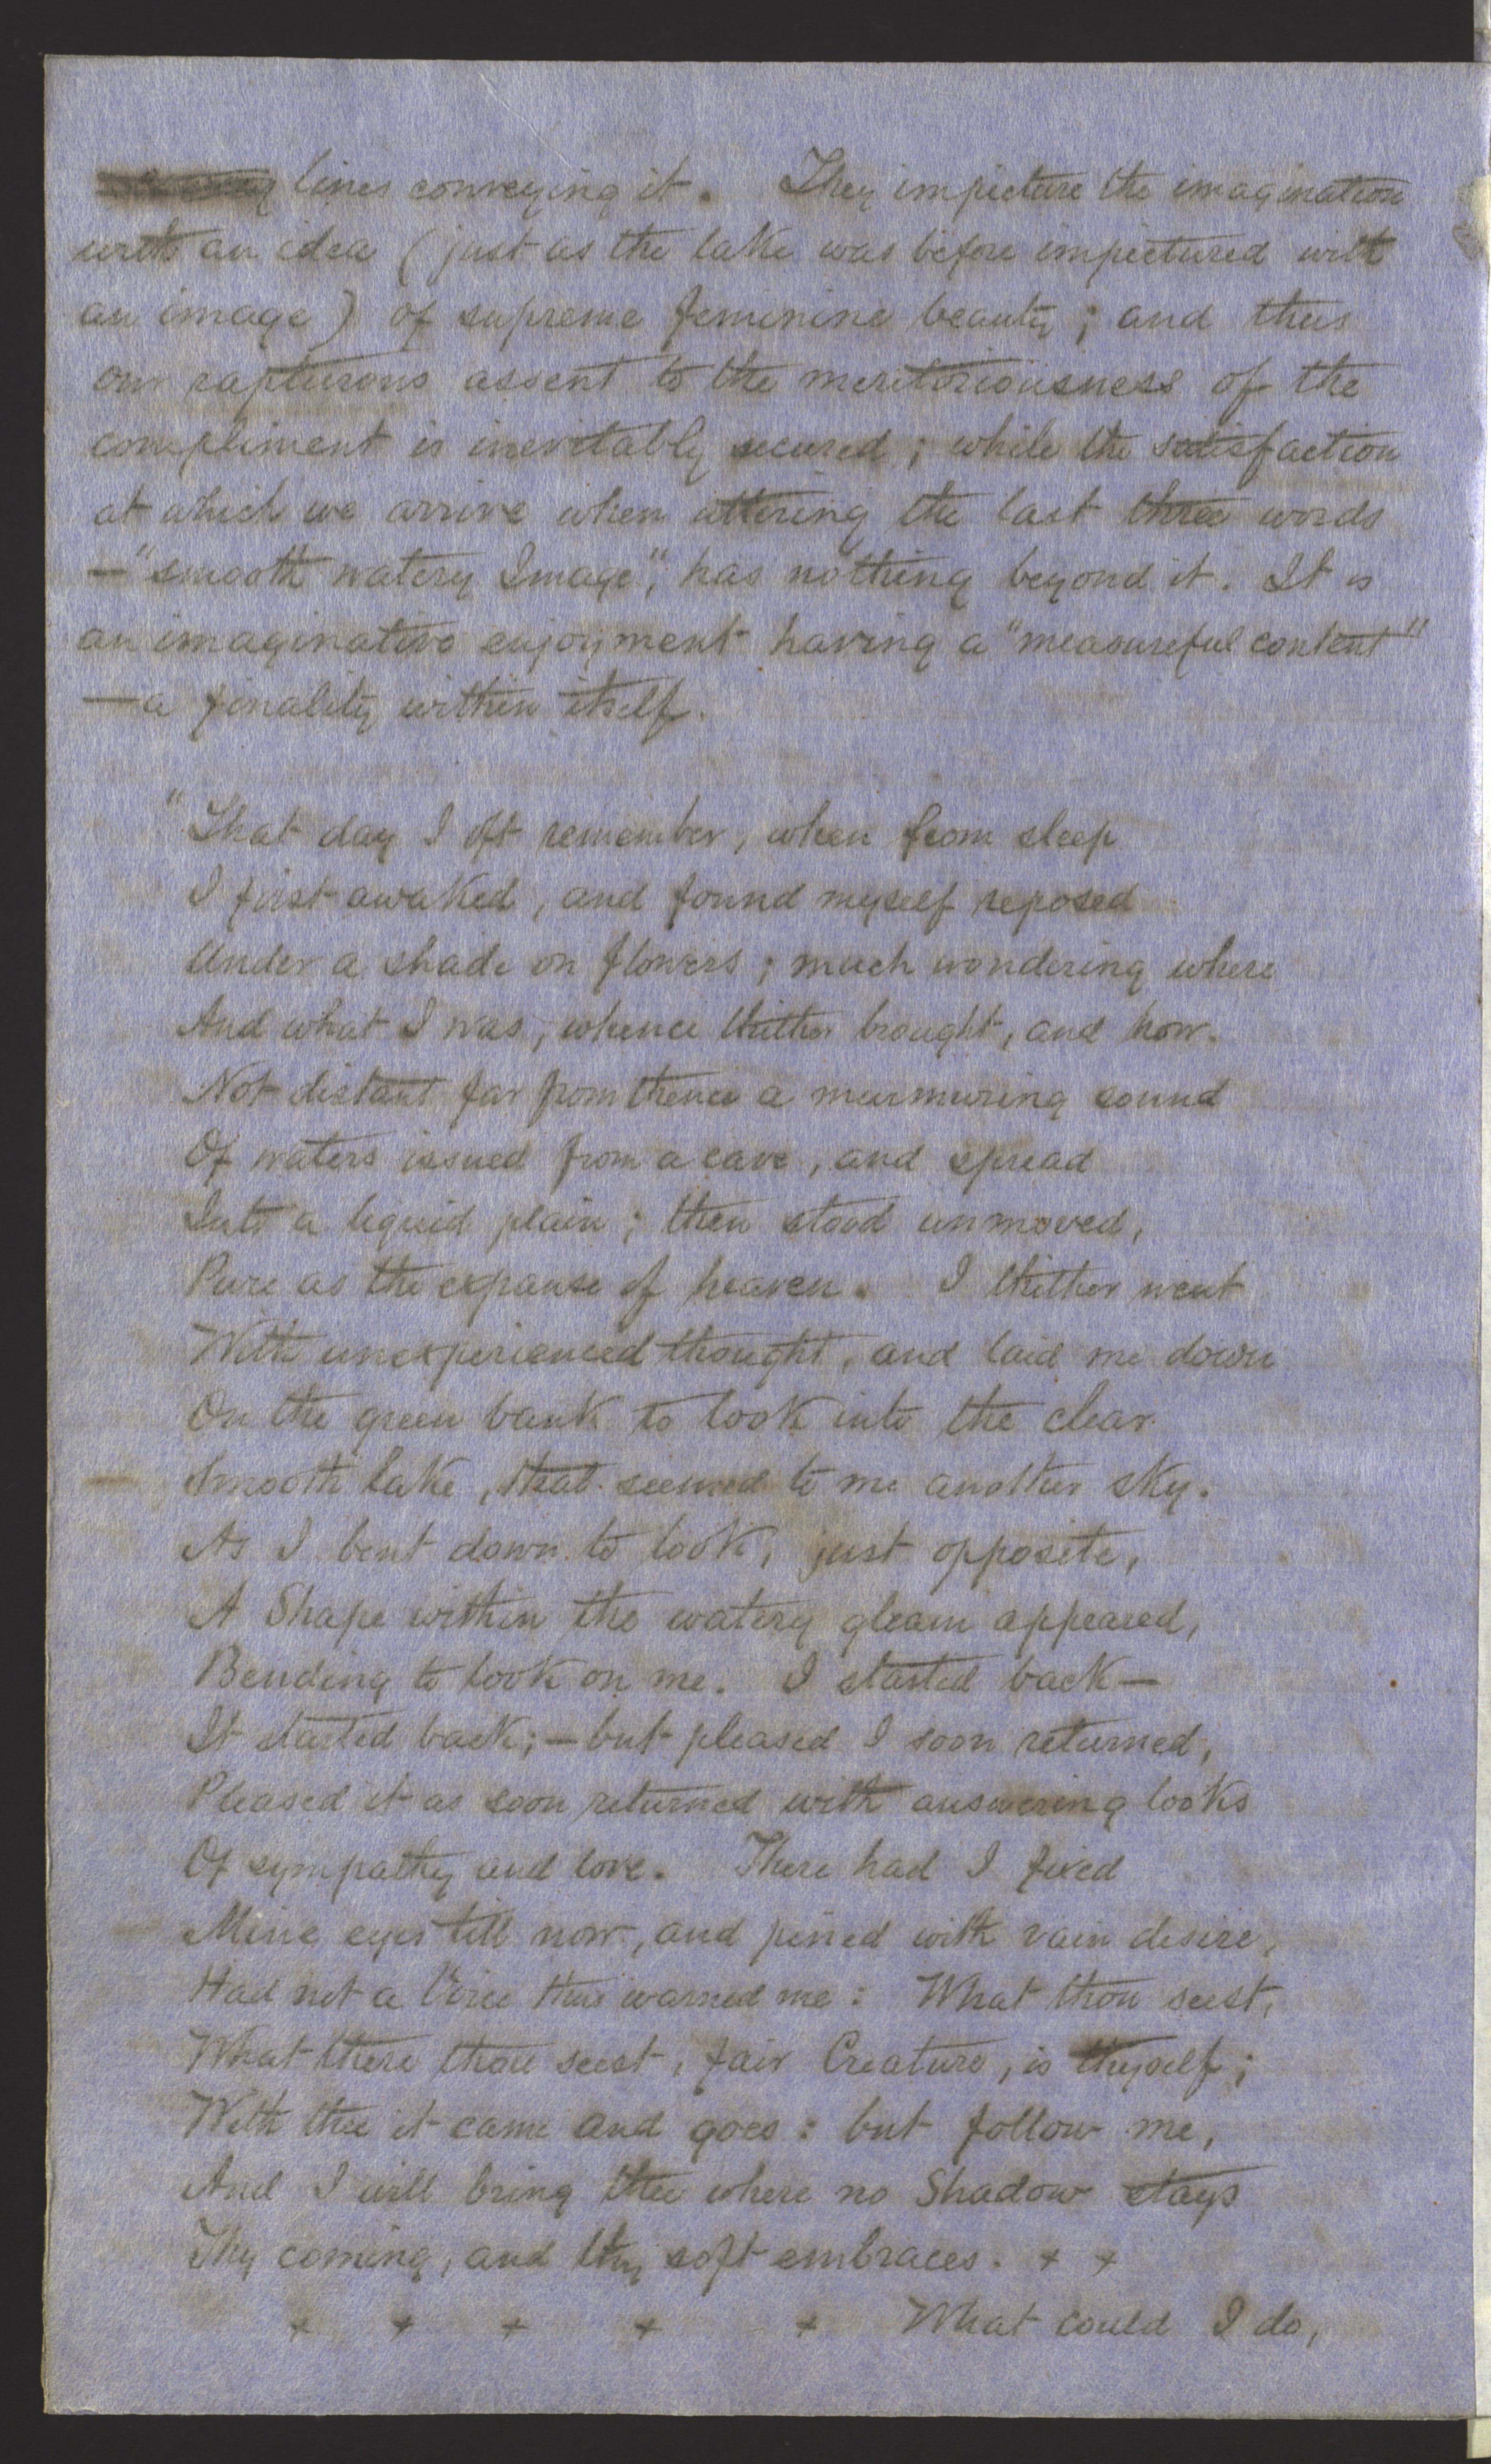 lines conveying it. They impicture the imagination
with an idea (just as the lake was before impictured with
an image) of supreme feminine beauty; and thus
our rapturous assent to the meritoriousness of the
compliment is inevitably secured; while the satisfaction
at which we arrive when uttering the last three words
—"smooth watery Image", has nothing beyond it. It is
an imaginative enjoyment having a "measureful content"
—a finality within itself.
"That day I oft remember, when from sleep
I first awaked, and found myself reposed
Under a shade on flowers; much wondering where
And what I was, whence thither brought, and how.
Not distant far from thence a murmuring sound
Of waters issued from a cave, and spread
Into a liquid plain; then stood unmoved,
Pure as the expanse of heaven. I thither went
With unexperienced thought, and laid me down
On the green bank to look into the clear
Smooth lake, that seemed to me another sky.
As I bent down to look, just opposite,
A Shape within the watery gleam appeared,
Bending to look on me. I started back—
It started back;—but pleased I soon returned,
Pleased it as soon returned with answering looks
Of sympathy and love. There had I fixed
Mine eyes till now, and pined with vain desire,
Had not a Voice thus warned me: What thou seest,
What there thou seest, fair Creature, is thyself;
With thee it came and goes: but follow me,
And I will bring thee where no Shadow stays
Thy coming, and thy soft embraces. + +
+ + + + + What could I do,